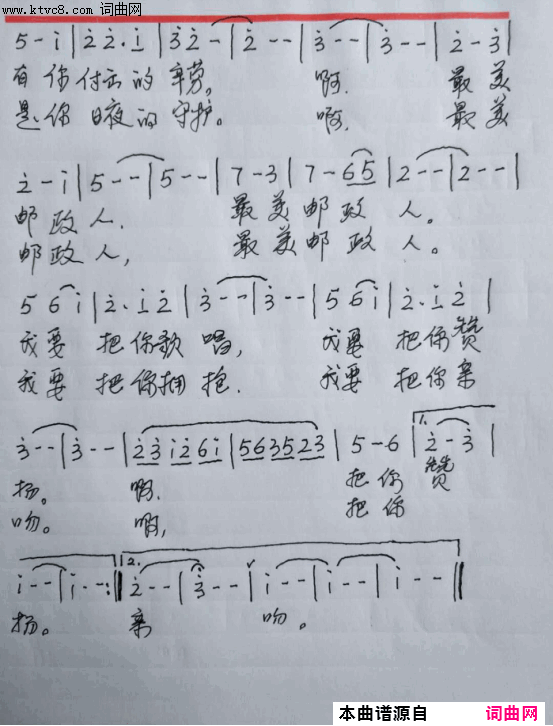 www.ktvc8.com 词曲网
5 - i | 2̇ 2̇. i | 3̇ 2̇ - | 2̇ - - | 3̇ - - | 3̇ - - | 2̇ - 3̇ |
有你付出的辛劳。 啊. 最美
是你日夜的守护。 啊. 最美
2̇ - i | 5 - - | 5 - - | 7 - 3 | 7 - 6 5 | 2 - - | 2 - - |
邮政人. 最美邮政人。
邮政人, 最美邮政人。
5 6 i | 2̇. i 2̇ | 3̇ - - | 3̇ - - | 5 6 i | 2̇. i 2̇ |
我要把你歌唱, 我要把你赞
我要把你拥抱. 我要把你亲
3̇ - - | 3̇ - - | 2̇ 3̇ i 2̇ 6 i | 5 6 3 5 2 3 | 5 - 6 | 1. 2̇ - 3̇ |
扬。 啊. 把你赞
吻。 啊, 把你
i - - | i - - :‖ 2. 2̇ - - | 3̇ - - | i - - | i - - | i - - ‖
扬。 亲吻。
本曲谱源自 词曲网